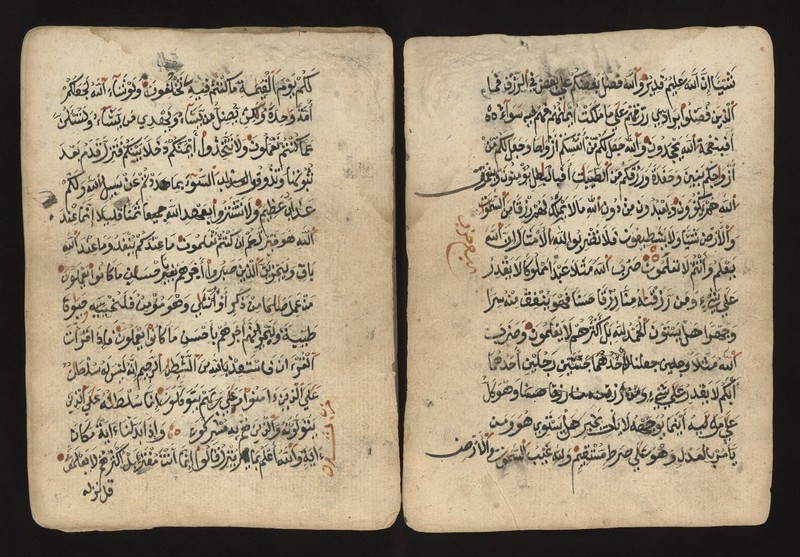 شيئا إن الله عليم قدير والله فضل بعضكم على بعض في الرزق فما
الذين فضلوا برادي رزقهم على ما ملكت أيمانهم فهم فيه سواء
أفبنعمة الله يجحدون والله جعل لكم من أنفسكم أزواجا وجعل لكم من
أزواجكم بنين وحفدة ورزقكم من الطيبات أفبالباطل يؤمنون وبنعمت
الله هم يكفرون ويعبدون من دون الله ما لا يملك لهم رزقا من السموت
والأرض شيئا ولا يستطيعون فلا تضربوا لله الأمثال إن الله
يعلم وأنتم لا تعلمون ضرب الله مثلا عبدا مملوكا لا يقدر
على شيء ومن رزقنه منا رزقا حسنا فهو ينفق منه سرا
وجهرا هل يستون الحمد لله بل أكثرهم لا يعلمون وضرب
الله مثلا رجلين جعلنا لأحدهما جنتين رجلين أحدهما
أبكم لا يقدر على شيء ومن رزقنه منا رزقا حسنا وهو كل
على موليه أينما يوجهه لا يأت بخير هل يستوي هو ومن
يأمر بالعدل وهو على صرط مستقيم ولله غيب السموت والأرض
لكم يوم القيمة ما كنتم فيه تختلفون ولو شاء الله لجعلكم
أمة وحدة ولكن يضل من يشاء ويهدي من يشاء ولتسئلن
عما كنتم تعملون ولا تتخذوا أيمنكم دخلا بينكم فتزل قدم بعد
ثبوتها وتذوقوا السوء بما صددتم عن سبيل الله ولكم
عذاب عظيم ولا تشتروا بعهد الله جميعا ثمنا قليلا إنما عند
الله هو خير لكم إن كنتم تعلمون ما عندكم ينفد وما عند الله
باق وليجزين الذين صبروا أجرهم بأحسن ما كانوا يعملون
من عمل صلحا من ذكر أو أنثى وهو مؤمن فلنحيينه حيوة
طيبة ولنجزينهم أجرهم بأحسن ما كانوا يعملون فإذا قرأت
القرءان فاستعذ بالله من الشيطن الرجيم إنه ليس له سلطان
على الذين ءامنوا وعلى ربهم يتوكلون إنما سلطانه على الذين
يتولونه والذين هم به مشركون وإذا بدلنا ءاية مكان
ءاية والله أعلم بما ينزل قالوا إنما أنت مفتر بل أكثرهم لا يعلمون
قل نزله